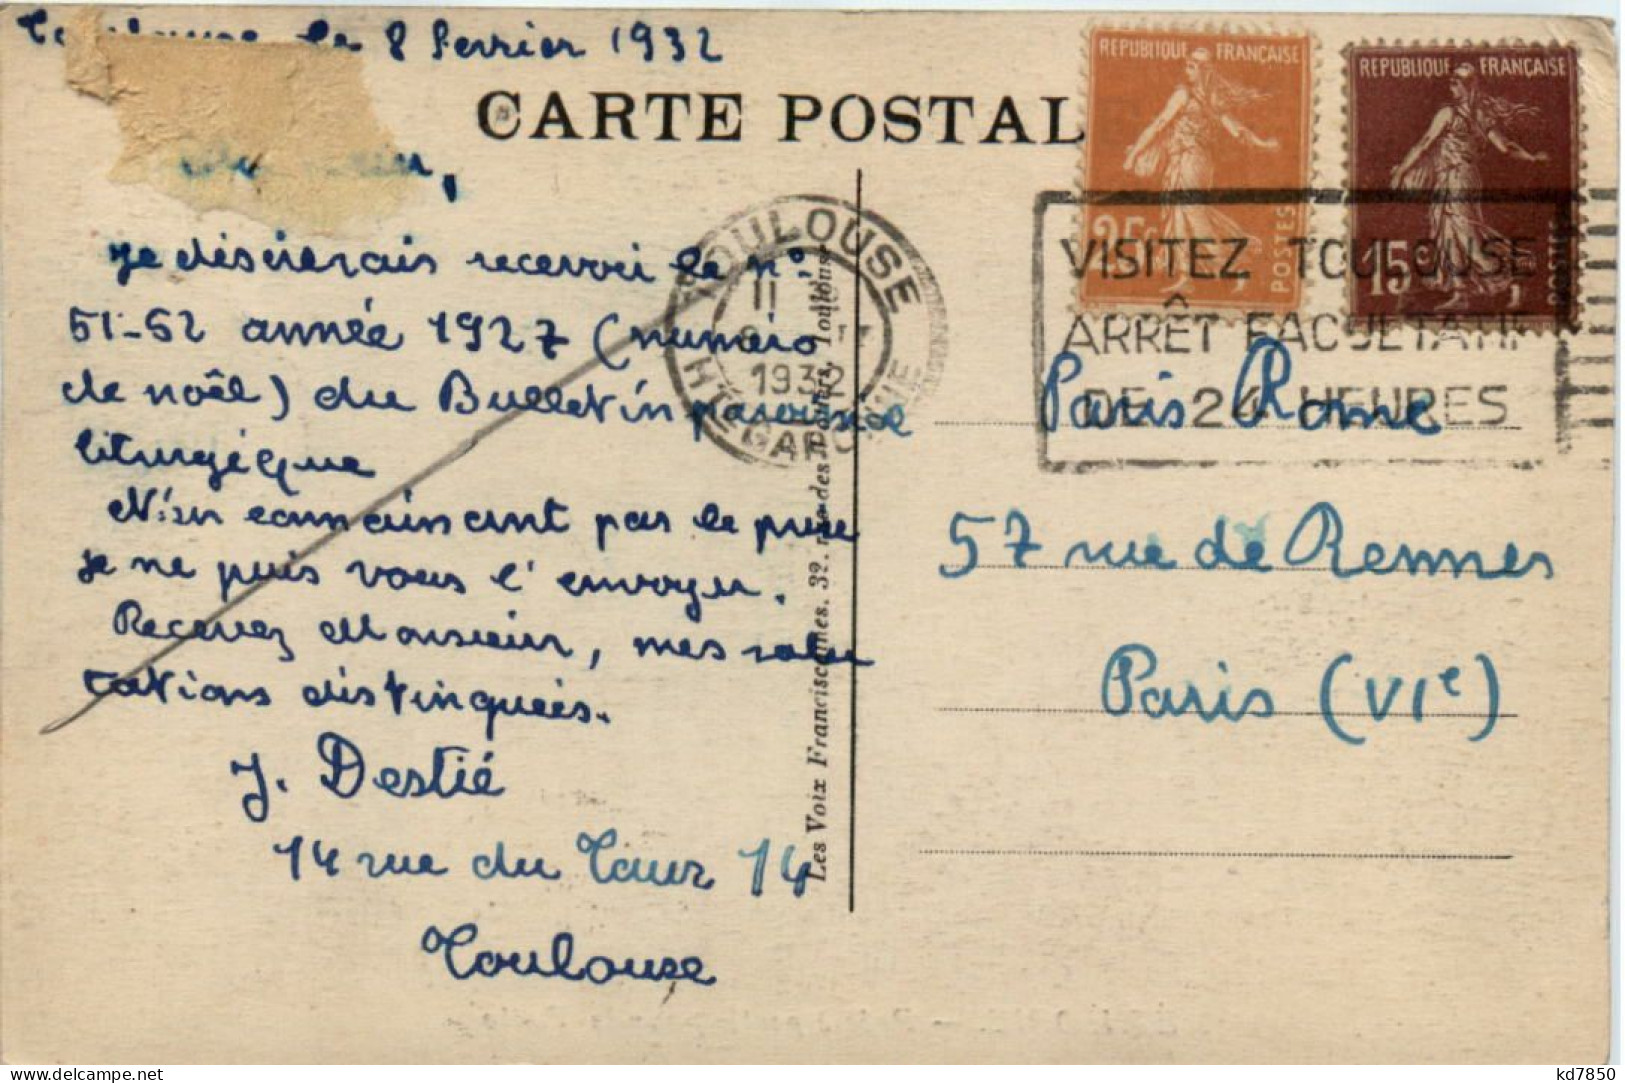 Toulouse le 8 fevrier 1932
CARTE POSTAL
REPUBLIQUE FRANÇAISE
25c
POSTES
REPUBLIQUE FRANÇAISE
15c
POSTES
TOULOUSE
II
1932
HTE GARONNE
VISITEZ TOULOUSE
ARRÊT FACULTATIF
DE 24 HEURES
Je désirerais recevoir le n°
51-52 année 1927 (numéro
de noël) du Bulletin paroissial
liturgique
N'en connaissant pas le prix
je ne puis vous l'envoyer.
Recevez Monsieur, mes salu
tations distinguées.
J. Destié
14 rue du Taur 14
Toulouse
Les Voix Franciscaines, 32, rue des Toulouse
Paris Rome
57 rue de Rennes
Paris (VIe)
kd7850